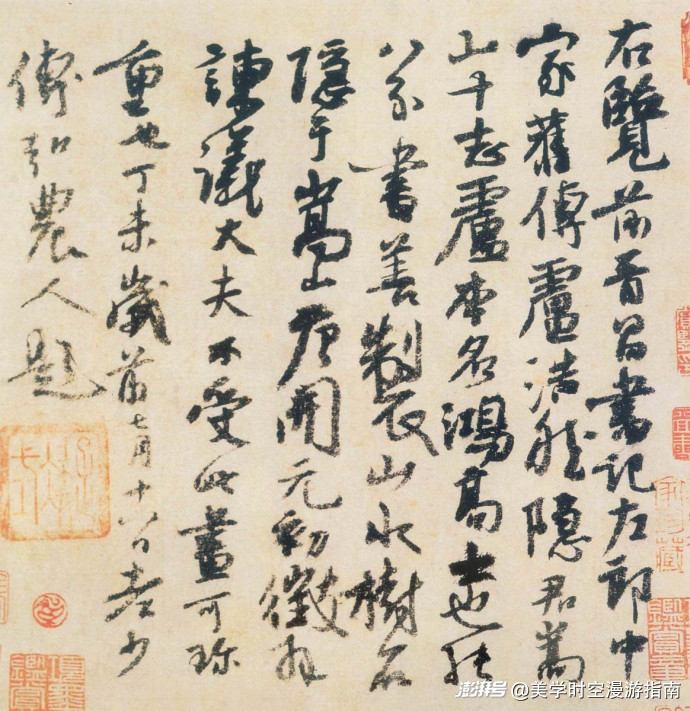 右覽前晉昌書記左郎中
家舊傳盧浩然隱居嵩
山十志盧本名鴻高士也能
八分書善製山水樹石
隱于嵩山唐開元初徵拜
諫議大夫不受此畫可珍
重也丁未歲前七月十八日老少
傅弘農人題
澎湃号@美学时空漫游指南